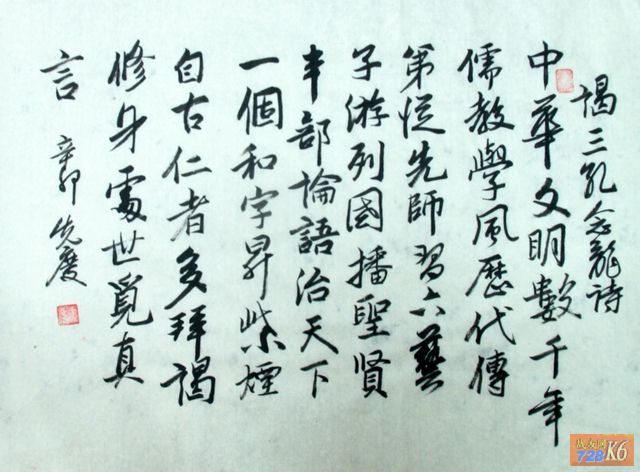 謁三孔念龍詩
中華文明數千年
儒教學風歷代傳
第從先師習六藝
子游列國播聖賢
半部論語治天下
一個和字昇紫煙
自古仁者多拜謁
修身處世覓真
言
辛卯 先慶
战友网
728K6